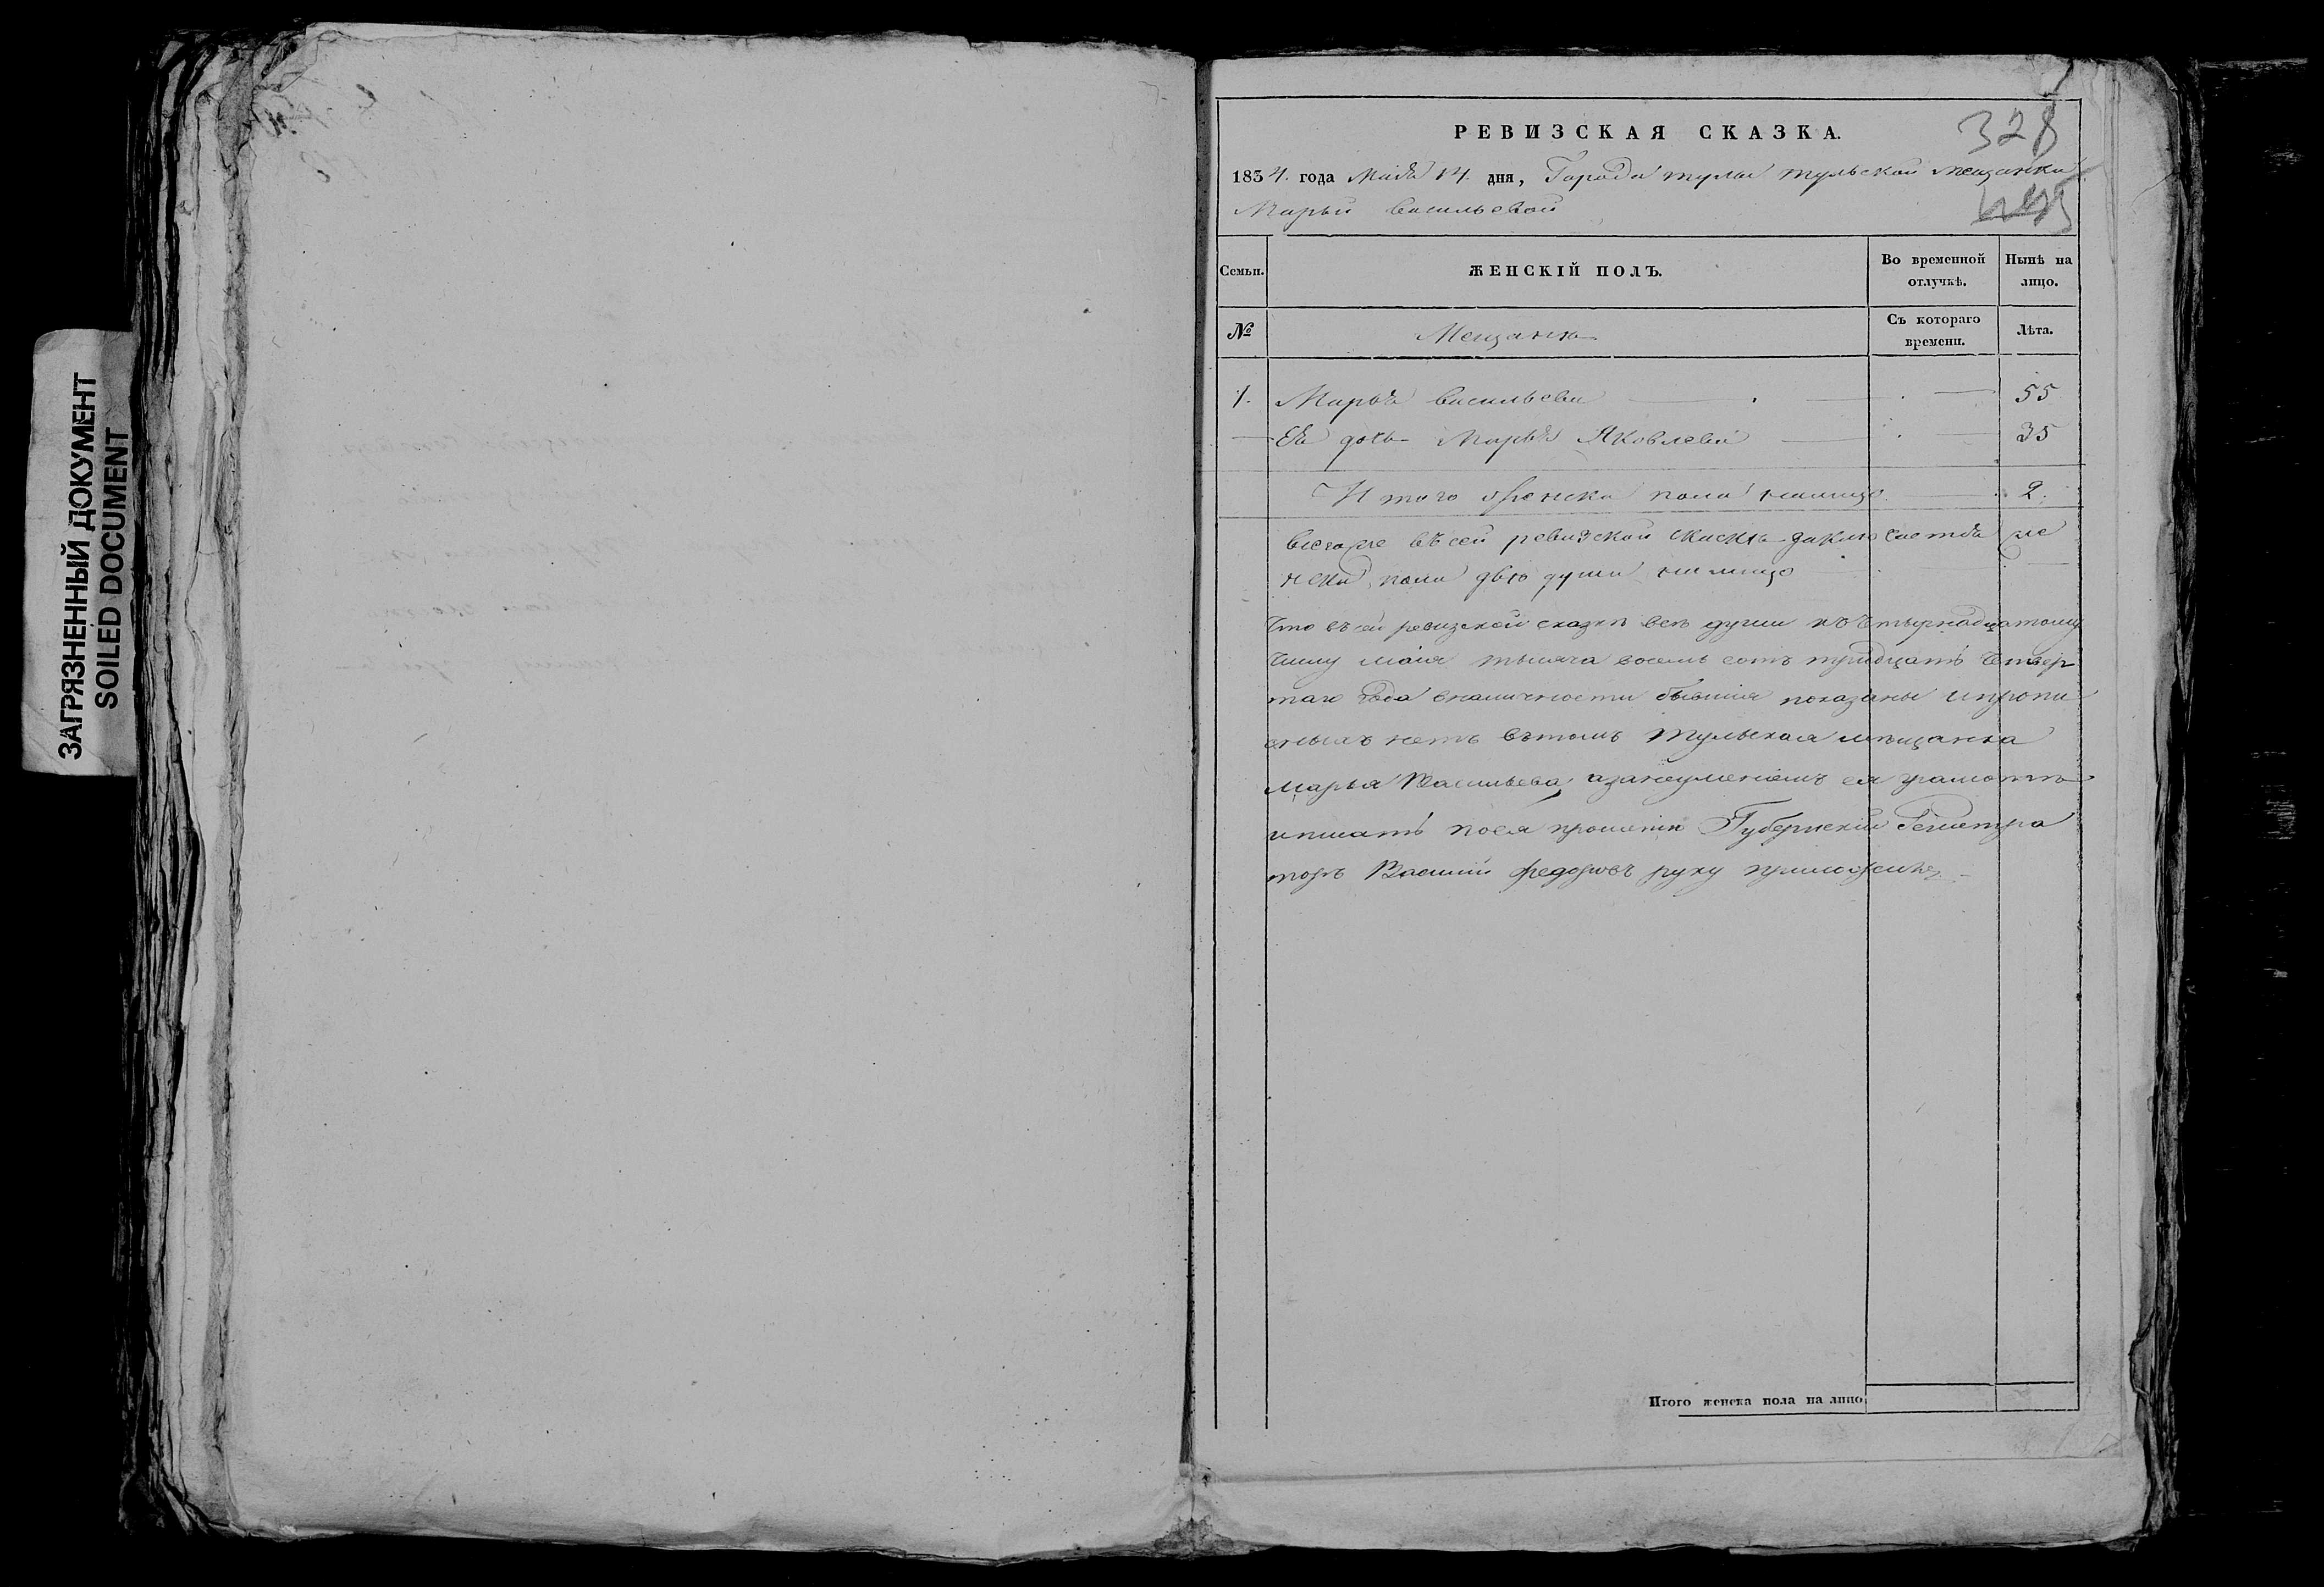 ЗАГРЯЗНЕННЫЙ ДОКУМЕНТ
SOILED DOCUMENT
328
РЕВИЗСКАЯ СКАЗКА.
1834. года Маия 14. дня, Города тулы тульской мещанки
Марьи васильевой
Семьи. ЖЕНСКІЙ ПОЛЪ. Во временной отлучкѣ. Нынѣ на лицо.
№ Мещанка Съ котораго времени. Лѣта.
1. Марья васильева 55
Ея дочь Марья Яковлева 35
Итого женска пола налицо 2.
всего же въ сей ревизской скаске заключается же
нска пола две души налицо
Что въ сей ревизской сказке все души къ Четырнадцатому
Числу маия тысяча восемь сотъ тридцать Четвер
таго года вналичности бывшия показаны ипропи
сныхъ нетъ вътомъ Тульская мещанка
марья Васильева, азанеумениемъ ея грамоте
иписать поея прошению Губернский Регистра
торъ Василий федоровъ руку приложилъ
Итого женска пола на лицо